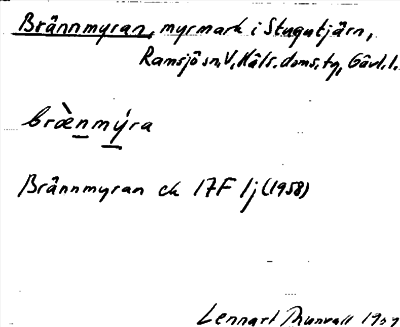 Brännmyran, myrmark i Stugutjärn,
Ramsjö sn, V. Häls. doms. ty, Gävl. l.
bræ̀nmýra
Brännmyran ek 17F 1j (1958)
Lennart